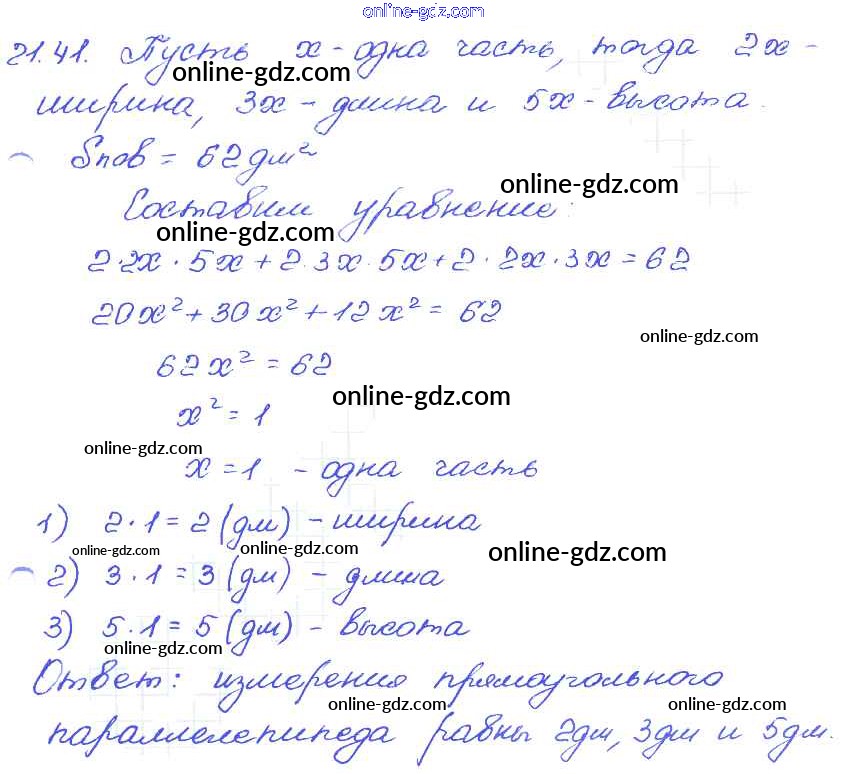 online-gdz.com
21.41. Пусть x - одна часть, тогда 2x -
online-gdz.com
ширина, 3x - длина и 5x - высота.
Sпов = 62 дм²
online-gdz.com
Составим уравнение:
online-gdz.com
2·2x·5x+2·3x·5x+2·2x·3x=62
20x²+30x²+12x²=62
online-gdz.com
62x²=62
online-gdz.com
x²=1
online-gdz.com
x=1 - одна часть
1) 2·1=2(дм) - ширина
online-gdz.com online-gdz.com online-gdz.com
2) 3·1=3(дм) - длина
3) 5·1=5(дм) - высота
online-gdz.com
Ответ: измерения прямоугольного
online-gdz.com online-gdz.com online-gdz.com
параллелепипеда равны 2дм, 3дм и 5дм.